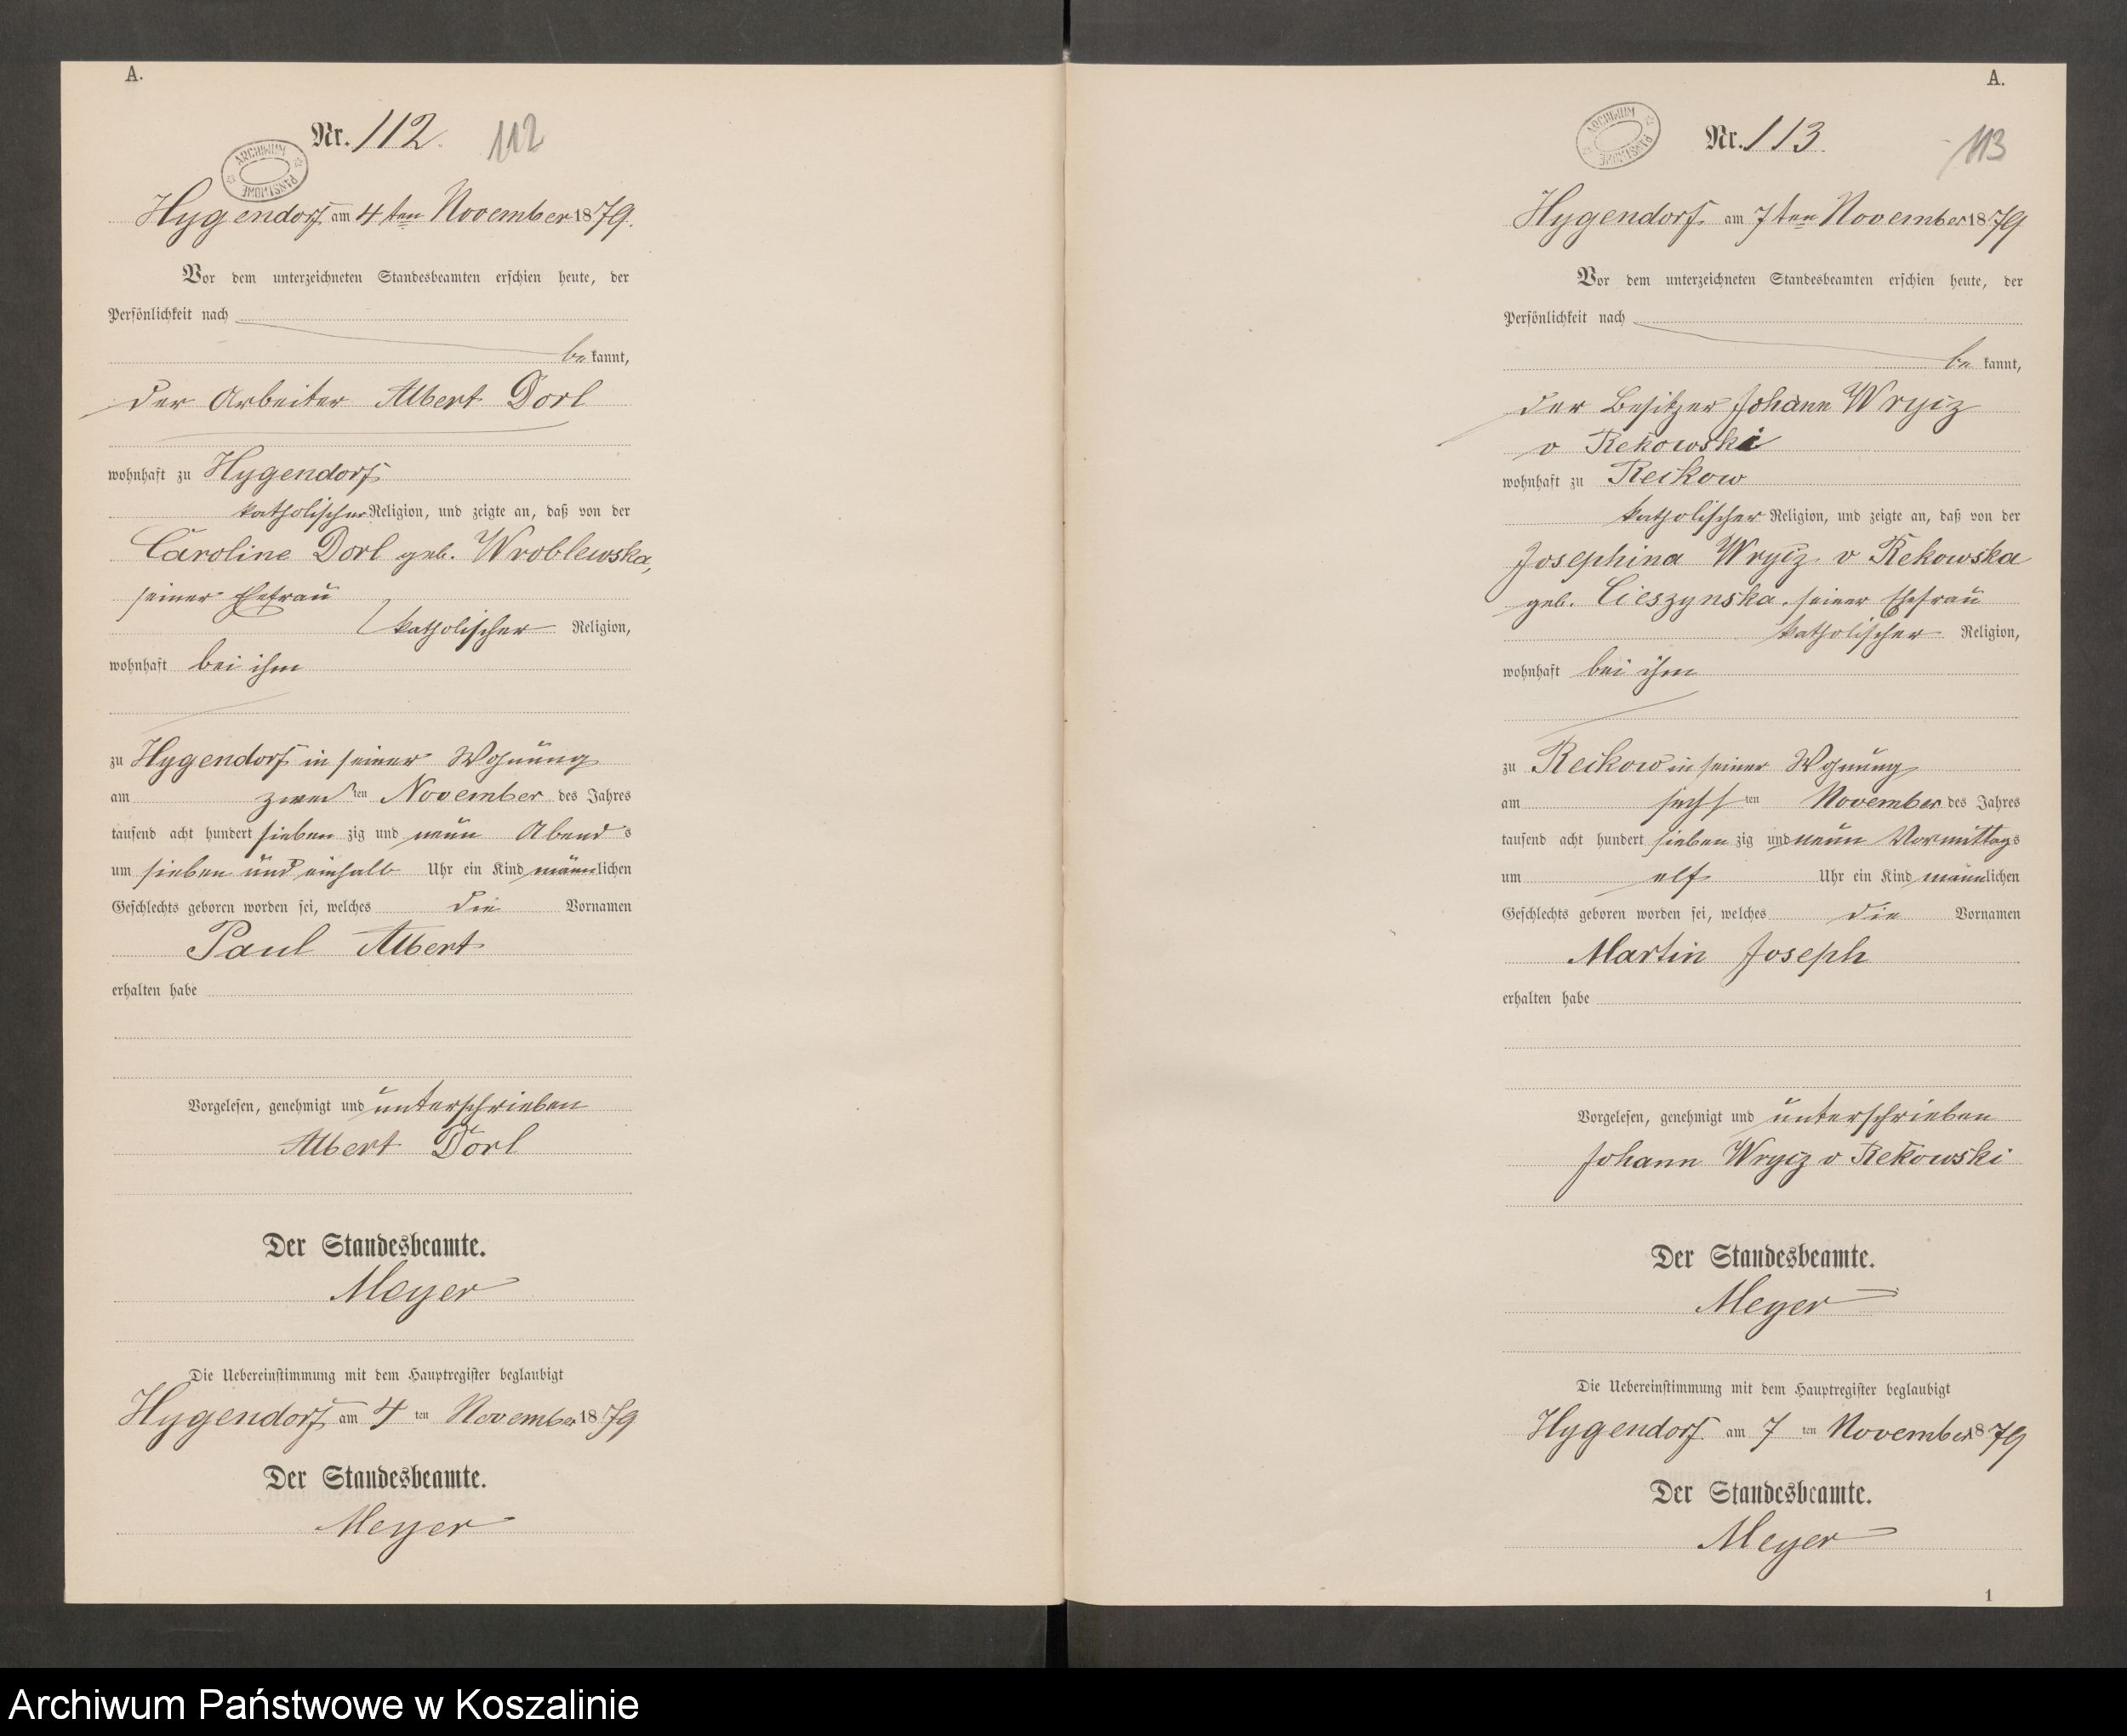 A.
Nr. 112. 112
ARCHIWUM PAŃSTWOWE
Hygendorf am 4ten November 1879.
Vor dem unterzeichneten Standesbeamten erschien heute, der
Persönlichkeit nach
be kannt,
der Arbeiter Albert Dorl
wohnhaft zu Hygendorf
katholischer Religion, und zeigte an, daß von der
Caroline Dorl geb. Wroblewska,
seiner Ehefrau
katholischer Religion,
wohnhaft bei ihm
zu Hygendorf in seiner Wohnung
am zwei ten November des Jahres
tausend acht hundert sieben zig und neun Abend s
um sieben und einhalb Uhr ein Kind männlichen
Geschlechts geboren worden sei, welches die Vornamen
Paul Albert
erhalten habe
Vorgelesen, genehmigt und unterschrieben
Albert Dorl
Der Standesbeamte.
Meyer
Die Uebereinstimmung mit dem Hauptregister beglaubigt
Hygendorf am 4 ten November 1879
Der Standesbeamte.
Meyer
A.
Nr. 113. 113
ARCHIWUM PAŃSTWOWE
Hygendorf am 7ten November 1879
Vor dem unterzeichneten Standesbeamten erschien heute, der
Persönlichkeit nach
be kannt,
der Besitzer Johann Wrycz
v Rekowski
wohnhaft zu Reckow
katholischer Religion, und zeigte an, daß von der
Josephina Wrycz v Rekowska
geb. Cieszynska, seiner Ehefrau
katholischer Religion,
wohnhaft bei ihm
zu Reckow in seiner Wohnung
am sechs ten November des Jahres
tausend acht hundert sieben zig und neun Vormittags
um elf Uhr ein Kind männlichen
Geschlechts geboren worden sei, welches die Vornamen
Martin Joseph
erhalten habe
Vorgelesen, genehmigt und unterschrieben
Johann Wrycz v Rekowski
Der Standesbeamte.
Meyer
Die Uebereinstimmung mit dem Hauptregister beglaubigt
Hygendorf am 7 ten November 1879
Der Standesbeamte.
Meyer
1
Archiwum Państwowe w Koszalinie